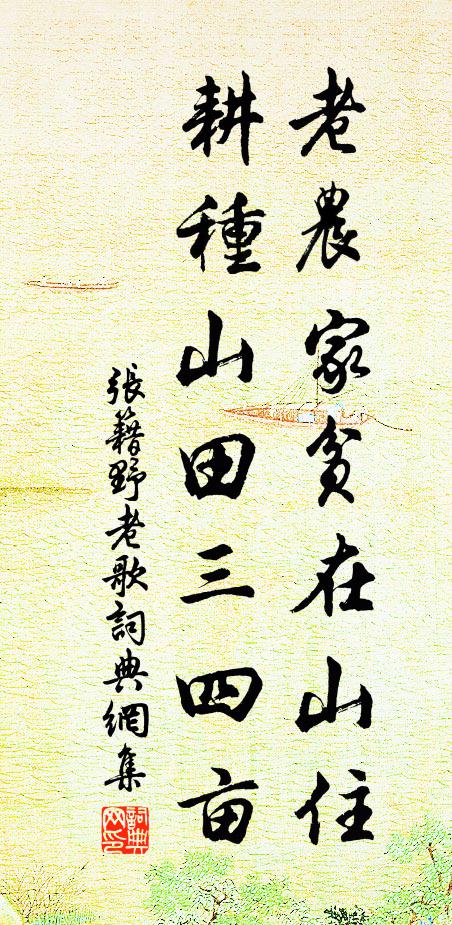 老農家貧在山住
耕種山田三四亩
張籍野老歌詞典網集
詞典網印